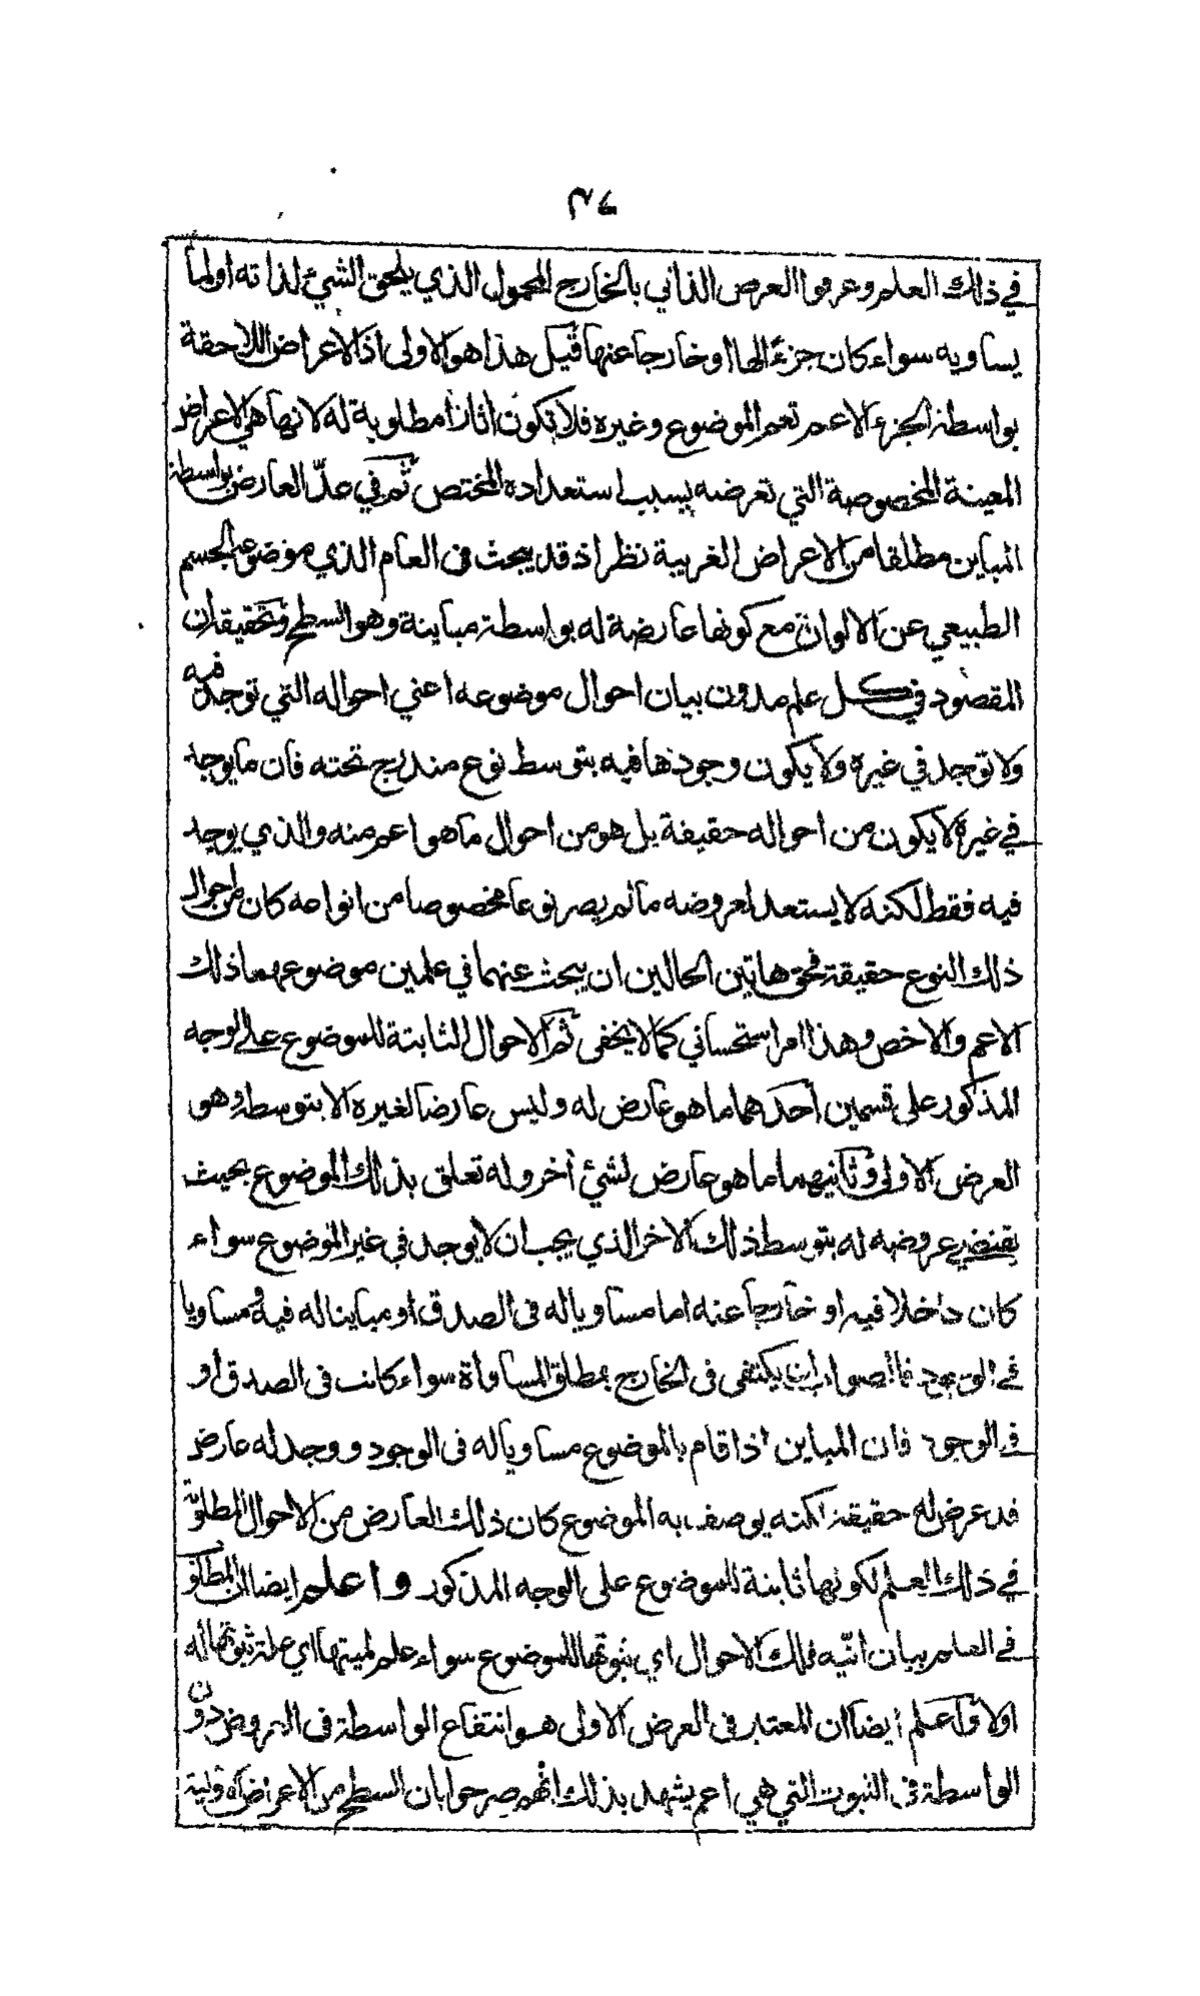 ٣٤
في ذلك العلم وعرفوا العرض الذاتي بالخارج المحمول الذي يلحق الشيئ لذاته او لما
يساويه سواء كان جزءً الها او خارجا عنها قيل هذا هو الاولى اذ الاعراض اللاحقة
بواسطة الجزء الاعم تعم الموضوع وغيره فلا تكون اثارا مطلوبة له لانها هي الاعراض
المعينة المخصوصة التي تعرضه بسبب استعداده المختص ثم في عدّ العارض بواسطة
المباين مطلقا من الاعراض الغريبة نظر اذ قد يبحث فى العام الذي موضوعه الجسم
الطبيعي عن الالوان مع كونها عارضة له بواسطة مباينة وهو السطح وتحقيقه ان
المقصود في كل علم مدون بيان احوال موضوعه اعني احواله التي توجد فيه
ولا توجد في غيره ولا يكون وجودها فيه بتوسط نوع مندرج تحته فان ما يوجد
في غيره لا يكون من احواله حقيقة بل هو من احوال ما هو اعم منه والذي يوجد
فيه فقط لكنه لا يستعد لعروضه ما لم يصر نوعا مخصوصا من انواعه كان من احوال
ذلك النوع حقيقة فحق هاتين الحالين ان يبحث عنهما في علمين موضوعهما ذلك
الاعم والاخص وهذا امر استحساني كما لا يخفى ثم الاحوال الثابتة للموضوع على الوجه
المذكور على قسمين احدهما ما هو عارض له وليس عارضا لغيره الا بتوسطه وهو
العرض الاولى وثانيهما ما هو عارض لشيئ آخر وله تعلق بذلك الموضوع بحيث
يقتضي عروضه له بتوسط ذلك الآخر الذي يجب ان لا يوجد في غير الموضوع سواء
كان داخلا فيه او خارجا عنه اما مساويا له فى الصدق او مباينا له فيه ومساويا
في الوجود فالصواب ان يكتفى فى الخارج بمطلق المساواة سواء كانت فى الصدق او
فى الوجود فان المباين اذا قام بالموضوع مساويا له فى الوجود ووجد له عارض
قد عرض له حقيقة لكنه يوصف به الموضوع كان ذلك العارض من الاحوال المطلوبة
في ذلك العلم لكونها ثابتة للموضوع على الوجه المذكور واعلم ايضا ان المطلوب
في العلم بيان انّيه تلك الاحوال اي ثبوتها للموضوع سواء علم لميتها اي علة ثبوتها له
اولا واعلم ايضا ان المعتبر فى العرض الاولى هو انتفاع الواسطة فى العروض دون
الواسطة فى الثبوت التي هي اعم يشهد بذلك انهم صرحوا بان السطح من الاعراض الاولية